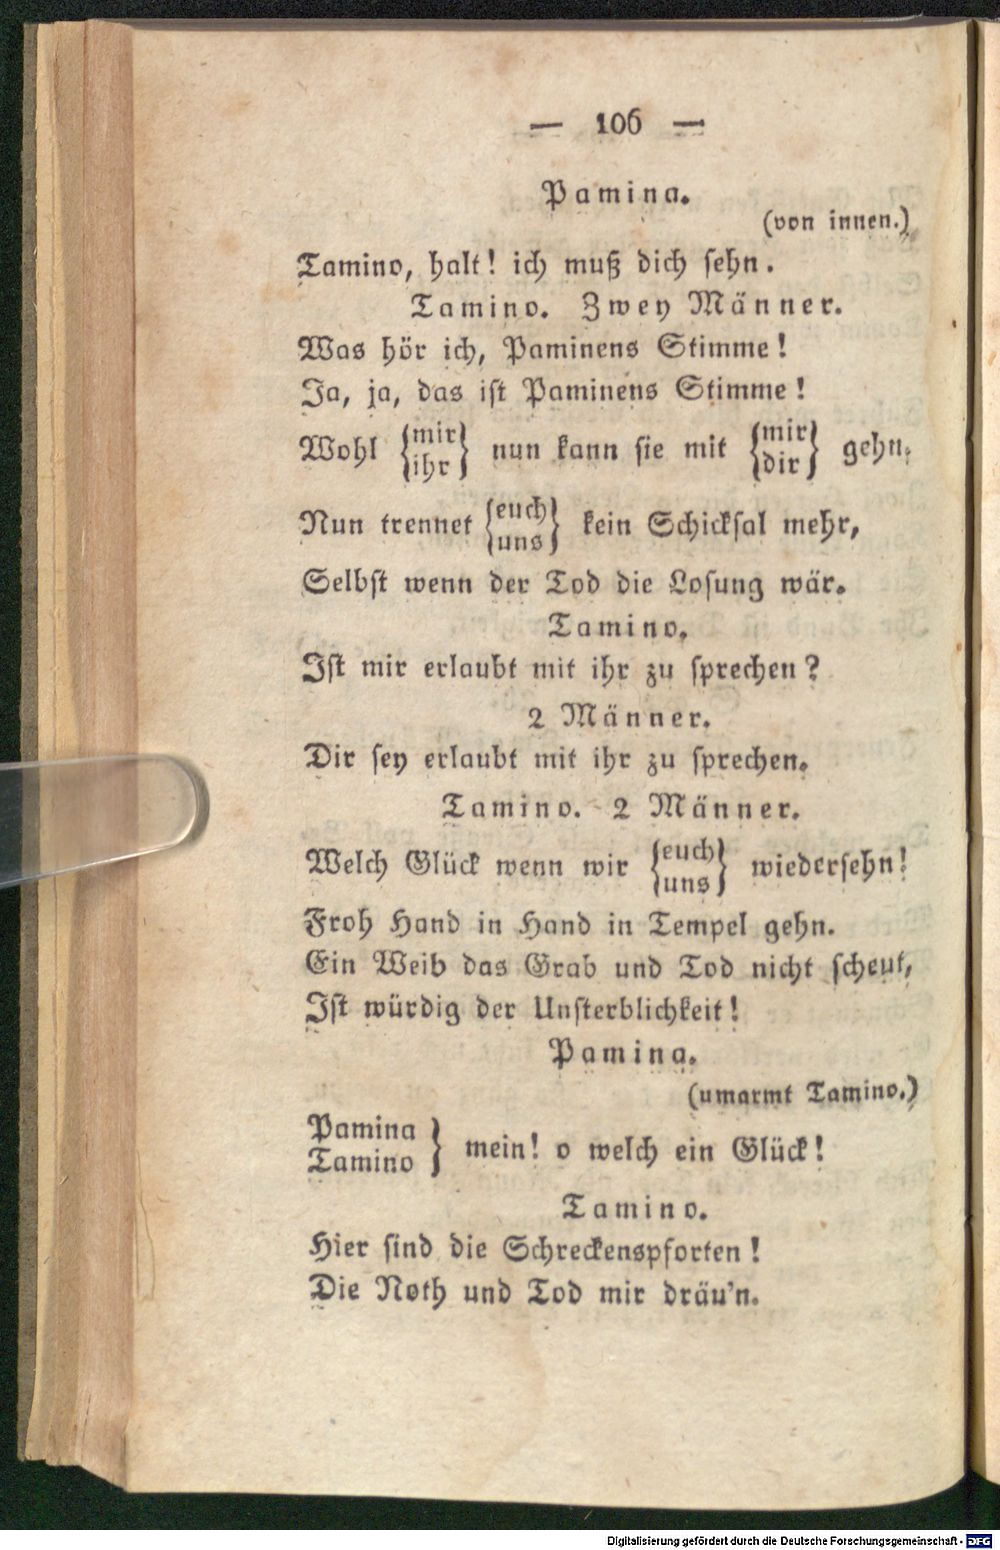 — 106 —
Pamina.
(von innen.)
Tamino, halt! ich muß dich sehn.
Tamino. Zwey Männer.
Was hör ich, Paminens Stimme!
Ja, ja, das ist Paminens Stimme!
Wohl {mir/ihr} nun kann sie mit {mir/dir} gehn.
Nun trennet {euch/uns} kein Schicksal mehr,
Selbst wenn der Tod die Losung wär.
Tamino.
Ist mir erlaubt mit ihr zu sprechen?
2 Männer.
Dir sey erlaubt mit ihr zu sprechen.
Tamino. 2 Männer.
Welch Glück wenn wir {euch/uns} wiedersehn!
Froh Hand in Hand in Tempel gehn.
Ein Weib das Grab und Tod nicht scheut,
Ist würdig der Unsterblichkeit!
Pamina.
(umarmt Tamino.)
Pamina/Tamino} mein! o welch ein Glück!
Tamino.
Hier sind die Schreckenspforten!
Die Noth und Tod mir dräu'n.
Digitalisierung gefördert durch die Deutsche Forschungsgemeinschaft - DFG